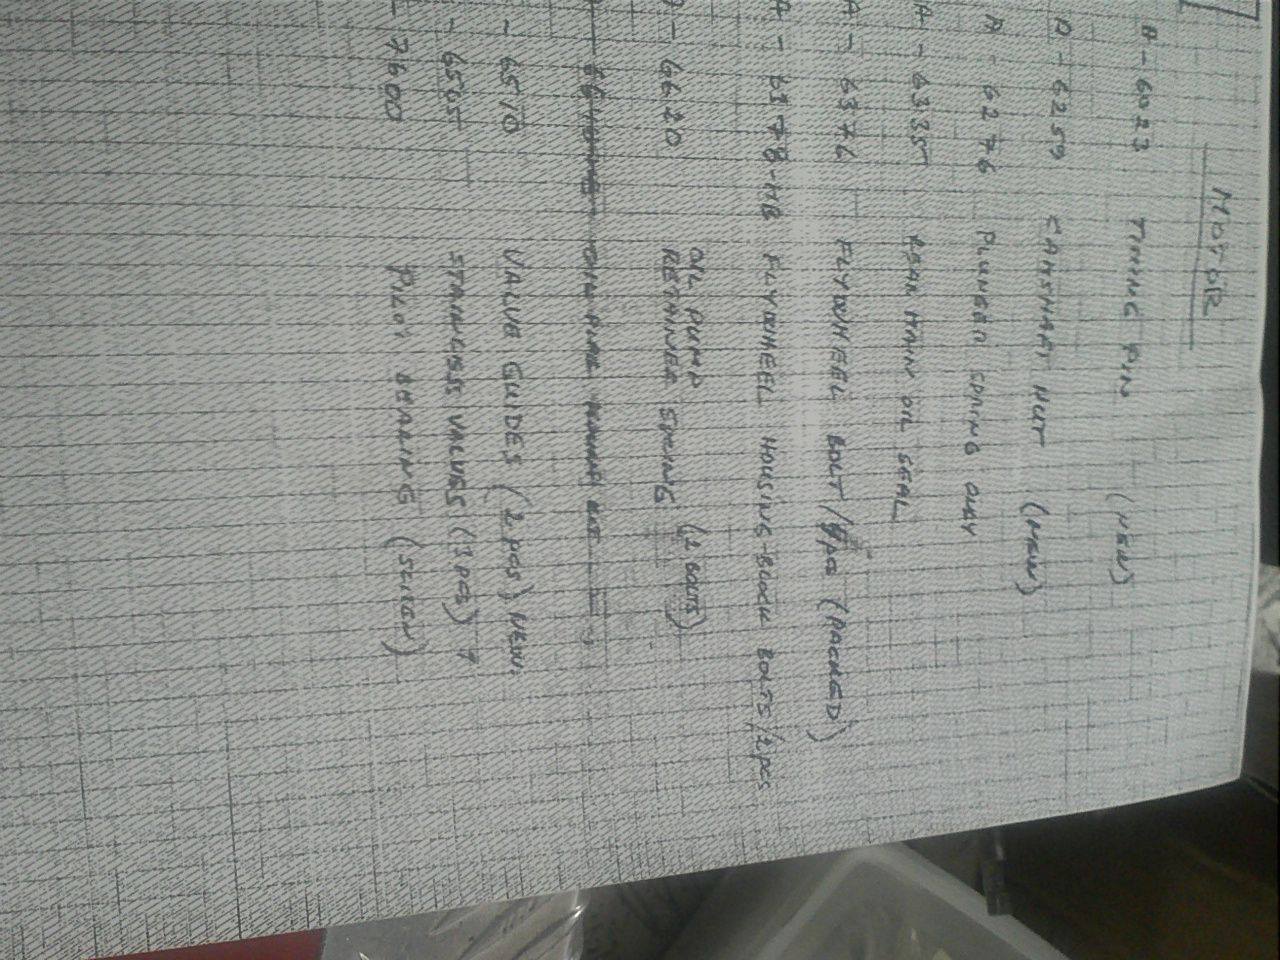 MOTOR
A-6023 TIMING PIN (NEW)
A-6259 CAMSHAFT NUT (NEW)
A-6276 PLUNGER SPRING ONLY
A-6335 REAR MAIN OIL SEAL
A-6376 FLYWHEEL BOLT/ pcs (PACKED)
A-6378-MB FLYWHEEL HOUSING-BLOCK BOLTS/2pcs
A-6620 OIL PUMP
RETAINER SPRING (2 BOLTS)
-6510 VALVE GUIDES (2 pcs) NEW
-6505 STAINLESS VALVES (3 pcs)
-7600 PILOT BEARING (SCREW)